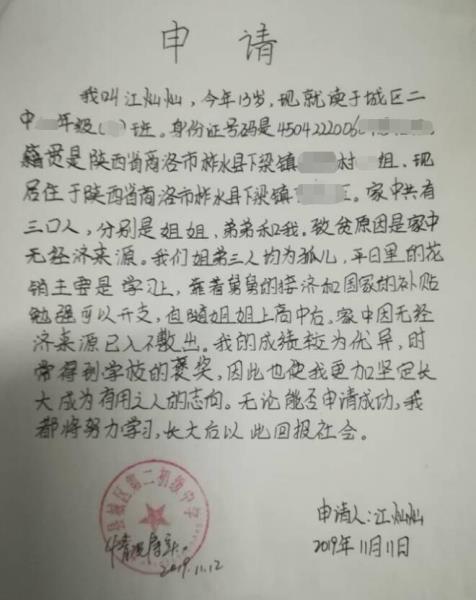 申 请
我叫江灿灿，今年13岁，现就读于城区二
中 年级( )班。身份证号码是4504222006
籍贯是陕西省商洛市柞水县下梁镇 村 组，现
居住于陕西省商洛市柞水县下梁镇 。家中共有
三口人，分别是姐姐、弟弟和我。致贫原因是家中
无经济来源。我们姐弟三人均为孤儿，平日里的花
销主要是学习上，靠着舅舅的接济和国家的补贴
勉强可以开支，但随姐姐上高中后，家中因无经
济来源已入不敷出。我的成绩较为优异，时
常得到学校的褒奖，因此也使我更加坚定长
大成为有用之人的志向。无论能否申请成功，我
都将努力学习，长大后以此回报社会。
县城区第二初级中学
申请人：江灿灿
情况属实
2019.11.12
2019年11月11日